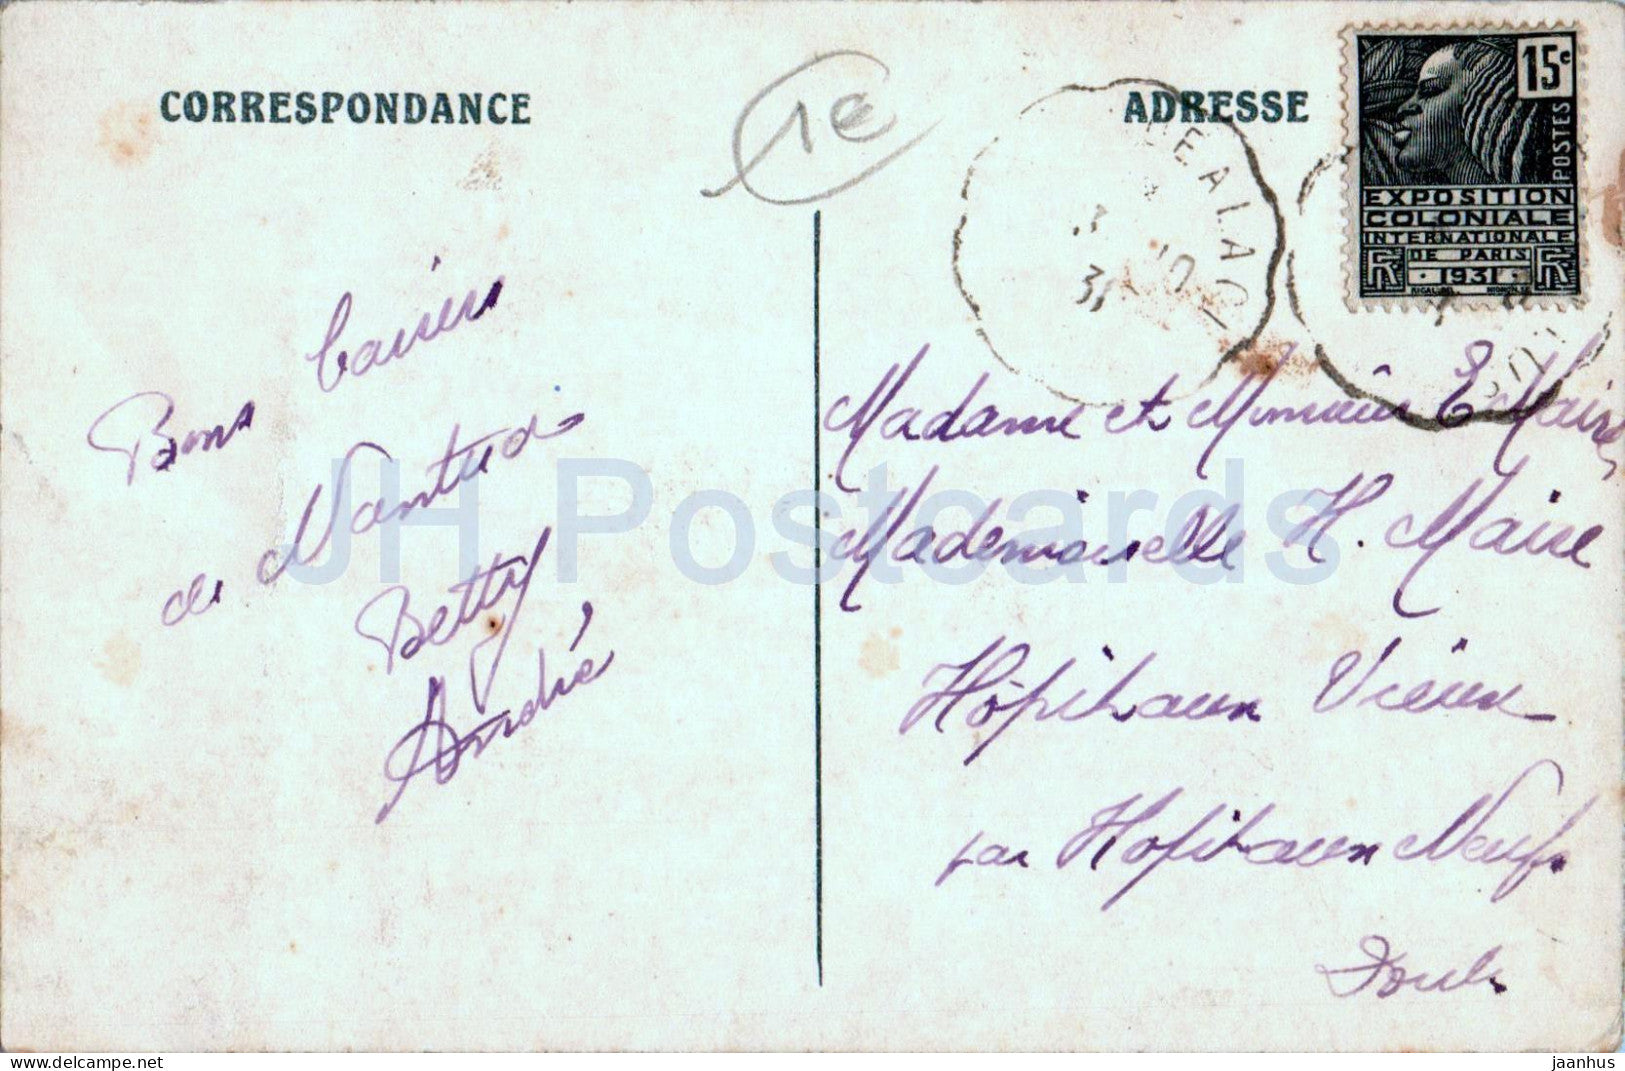 CORRESPONDANCE
1€
Bons baisers
de Nantua
Betty
André
ADRESSE
15c
POSTES
EXPOSITION
COLONIALE
INTERNATIONALE
DE PARIS
RF 1931 RF
Madame et Monsieur E Maire
Mademoiselle H. Maire
Hôpitaux Vieux
par Hopitaux Neufs
Doubs
JH Postcards
delcampe.net
jaanhus